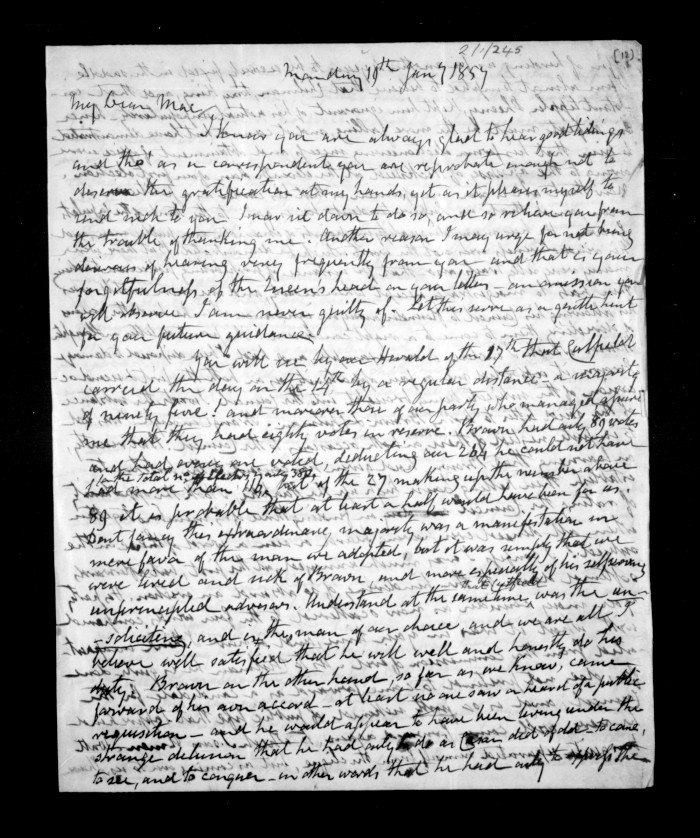 2/1/245
(12)
Monday 19th Jany 1857
My Dear Mac
I know you are always glad to hear good tidings
and tho' as a correspondent you are reprobate enough not to
deserve the gratification at my hands, yet as it pleases myself to
send such to you I now sit down to do so, and so relieve you from
the trouble of thanking me. Another reason I may urge for not being
desirous of hearing very frequently from you and that is your
forgetfulness of the Queen's head on your letters - an omission you
will observe I am never guilty of. Let this serve as a gentle hint
for your future guidance
You will see by our Herald of the 17th that Cutfield
carried the day on the by a regular distance - a majority
of ninety five! and moreover those of our party who managed
me that they had eighty votes in reserve. Brown had only 89 votes
and had every one voted, deducting our 264 he could not have
had more than
out of the 27 making up the number above
89 it is probable that at least a half would have been for us.
Dont fancy this extraordinary majority was a manifestation in
mere favor of the man we adopted, but it was simply that we
were tired and sick of Brown, and more especially of his self seeking
unprincipled advisers. Understand at the same time, was the un-
-soliciting, and is the man of our choice, and we are all I
believe well satisfied that he will well and honestly do his
duty. Brown on the other hand, so far as we know, came
forward of his own accord - at least no one saw or heard of a public
requisition - and he would appear to have been living under the
strange delusion that he had only to do as did of old - to come,
to see, and to conquer - in other words that he had only to the